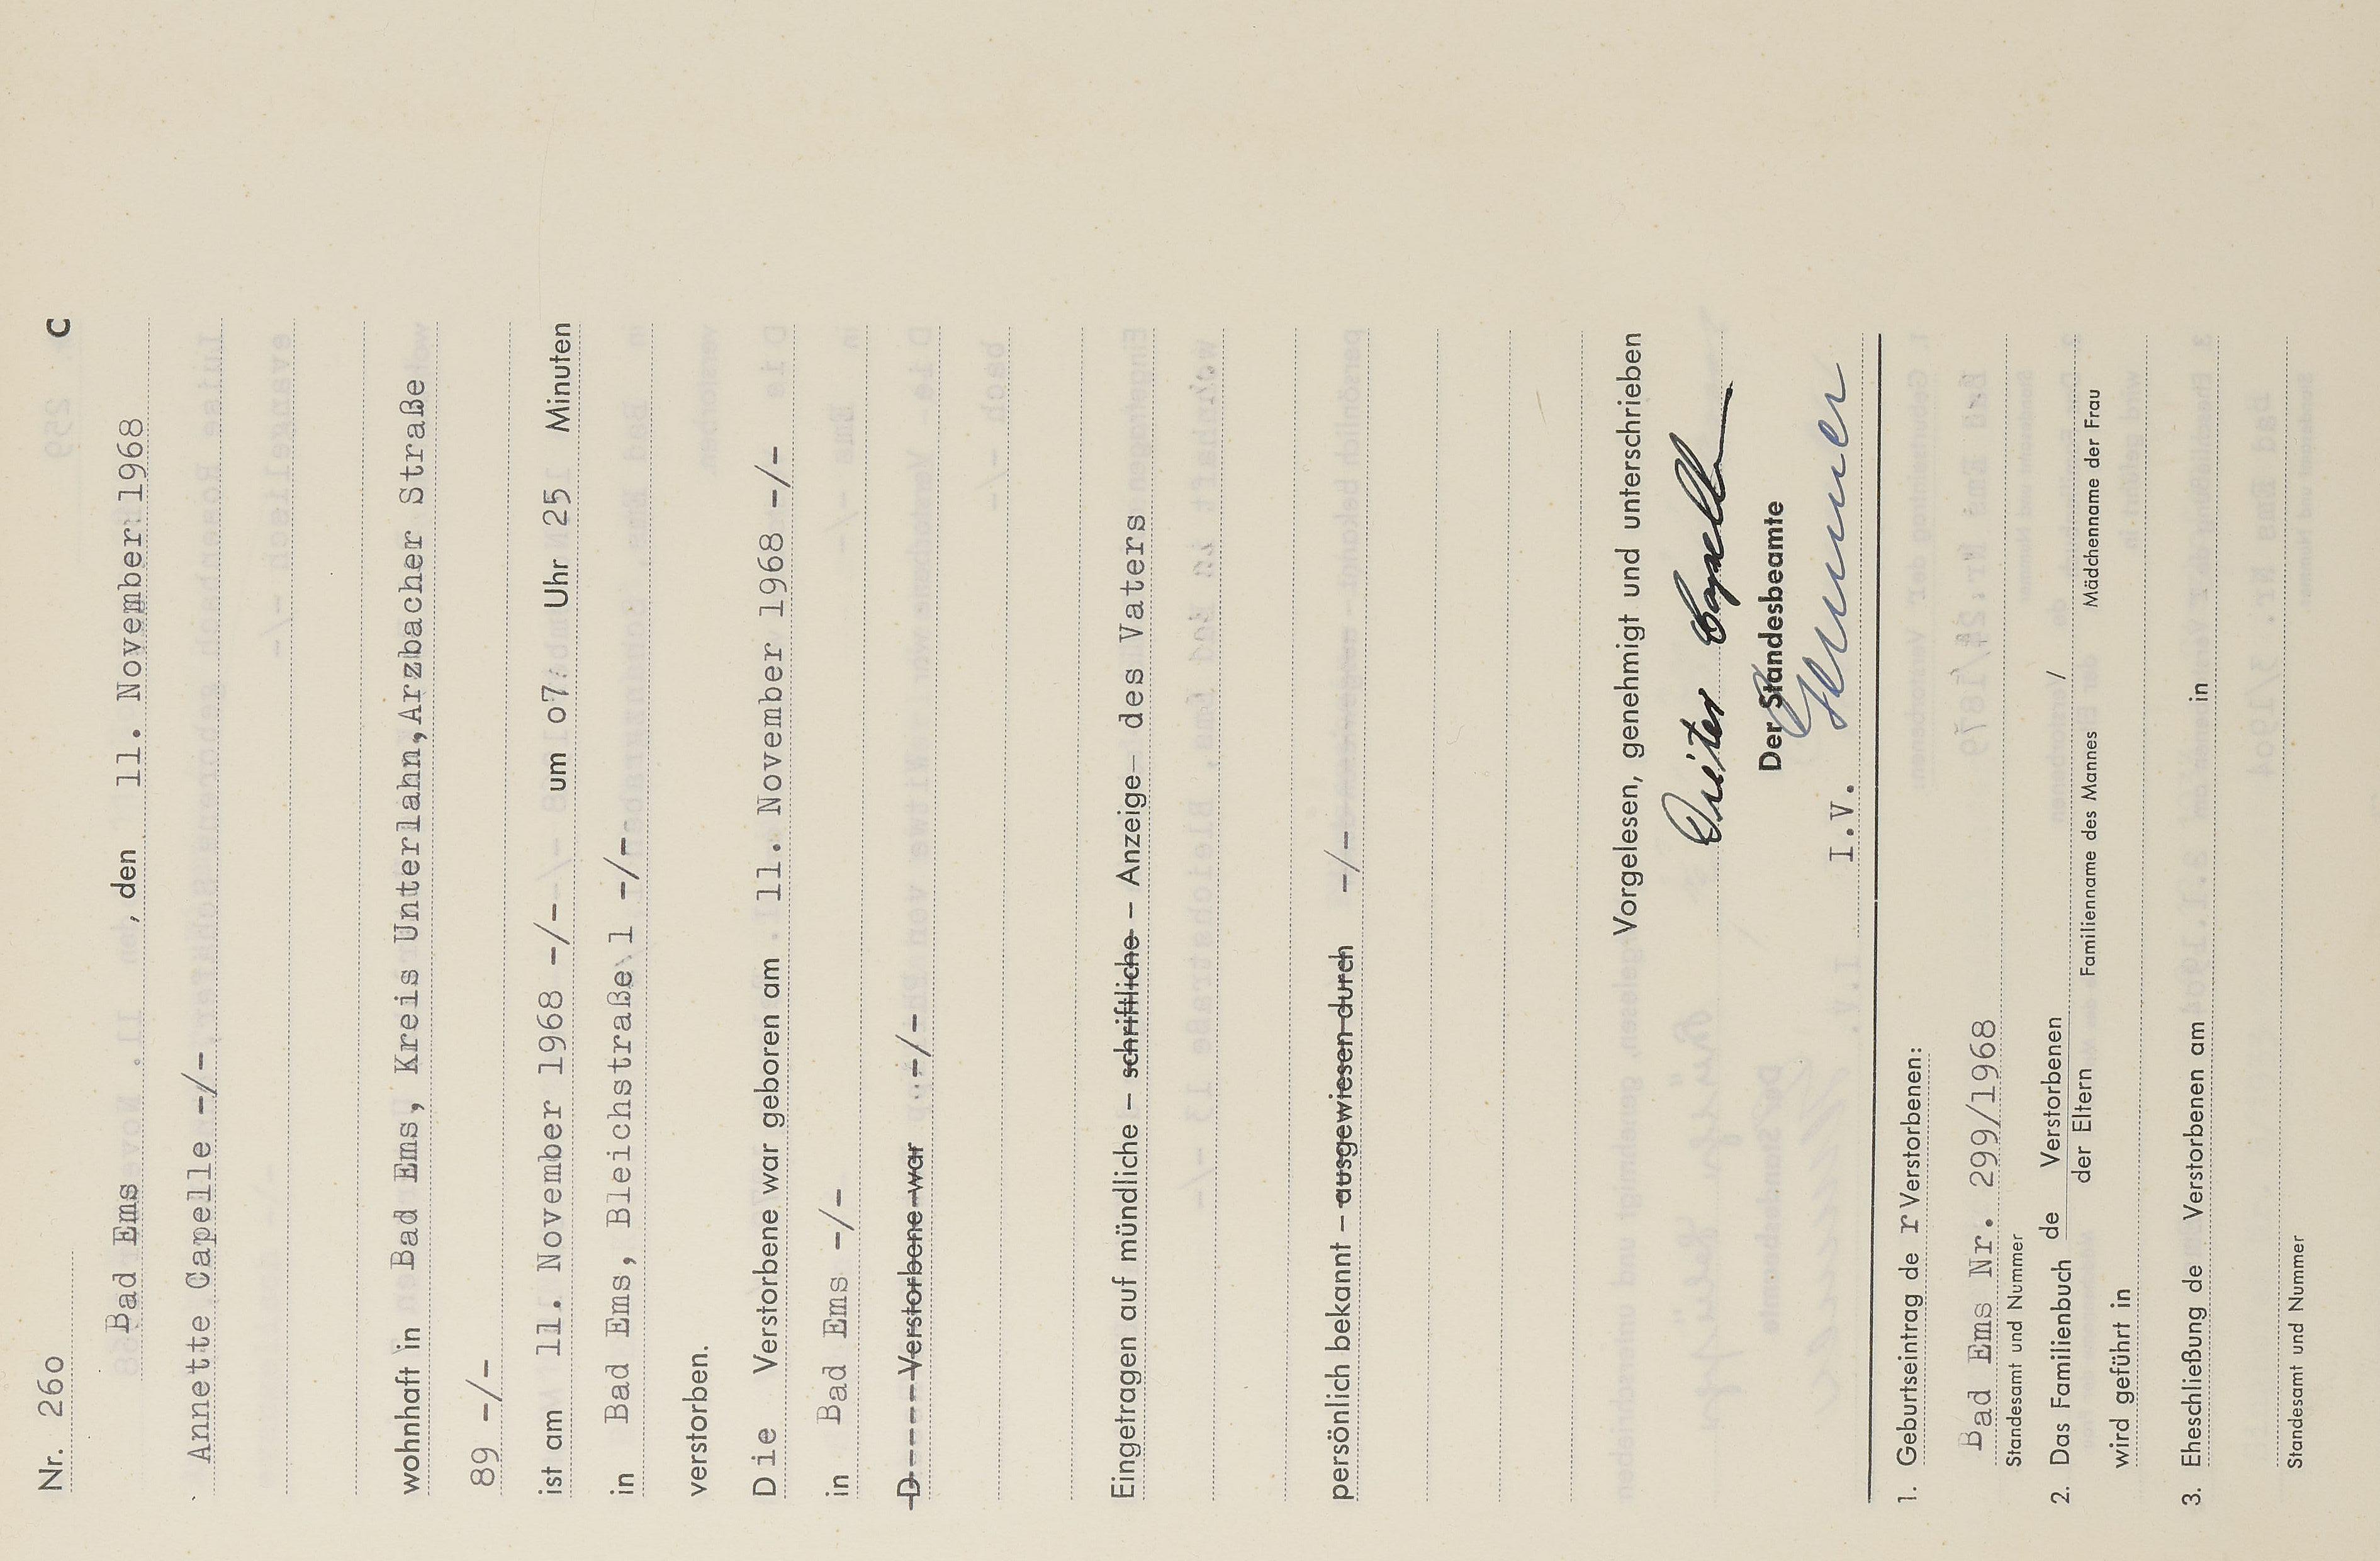 Nr. 26o C
Bad Ems, den 11. November 1968
Annette Capelle -/-
wohnhaft in Bad Ems, Kreis Unterlahn, Arzbacher Straße
89 -/-
ist am 11. November 1968 -/- um o7 Uhr 25 Minuten
in Bad Ems, Bleichstraße 1 -/-
verstorben.
Die Verstorbene war geboren am 11. November 1968 -/-
in Bad Ems -/-
D---- Verstorbene war -/-
Eingetragen auf mündliche – schriftliche – Anzeige – des Vaters
persönlich bekannt – ausgewiesen durch -/-
Vorgelesen, genehmigt und unterschrieben
Dieter Capelle
Der Standesbeamte
I.V.
1. Geburtseintrag de r Verstorbenen:
Bad Ems Nr. 299/1968
Standesamt und Nummer
2. Das Familienbuch de Verstorbenen /
der Eltern Familienname des Mannes Mädchenname der Frau
wird geführt in
3. Eheschließung de Verstorbenen am in
Standesamt und Nummer